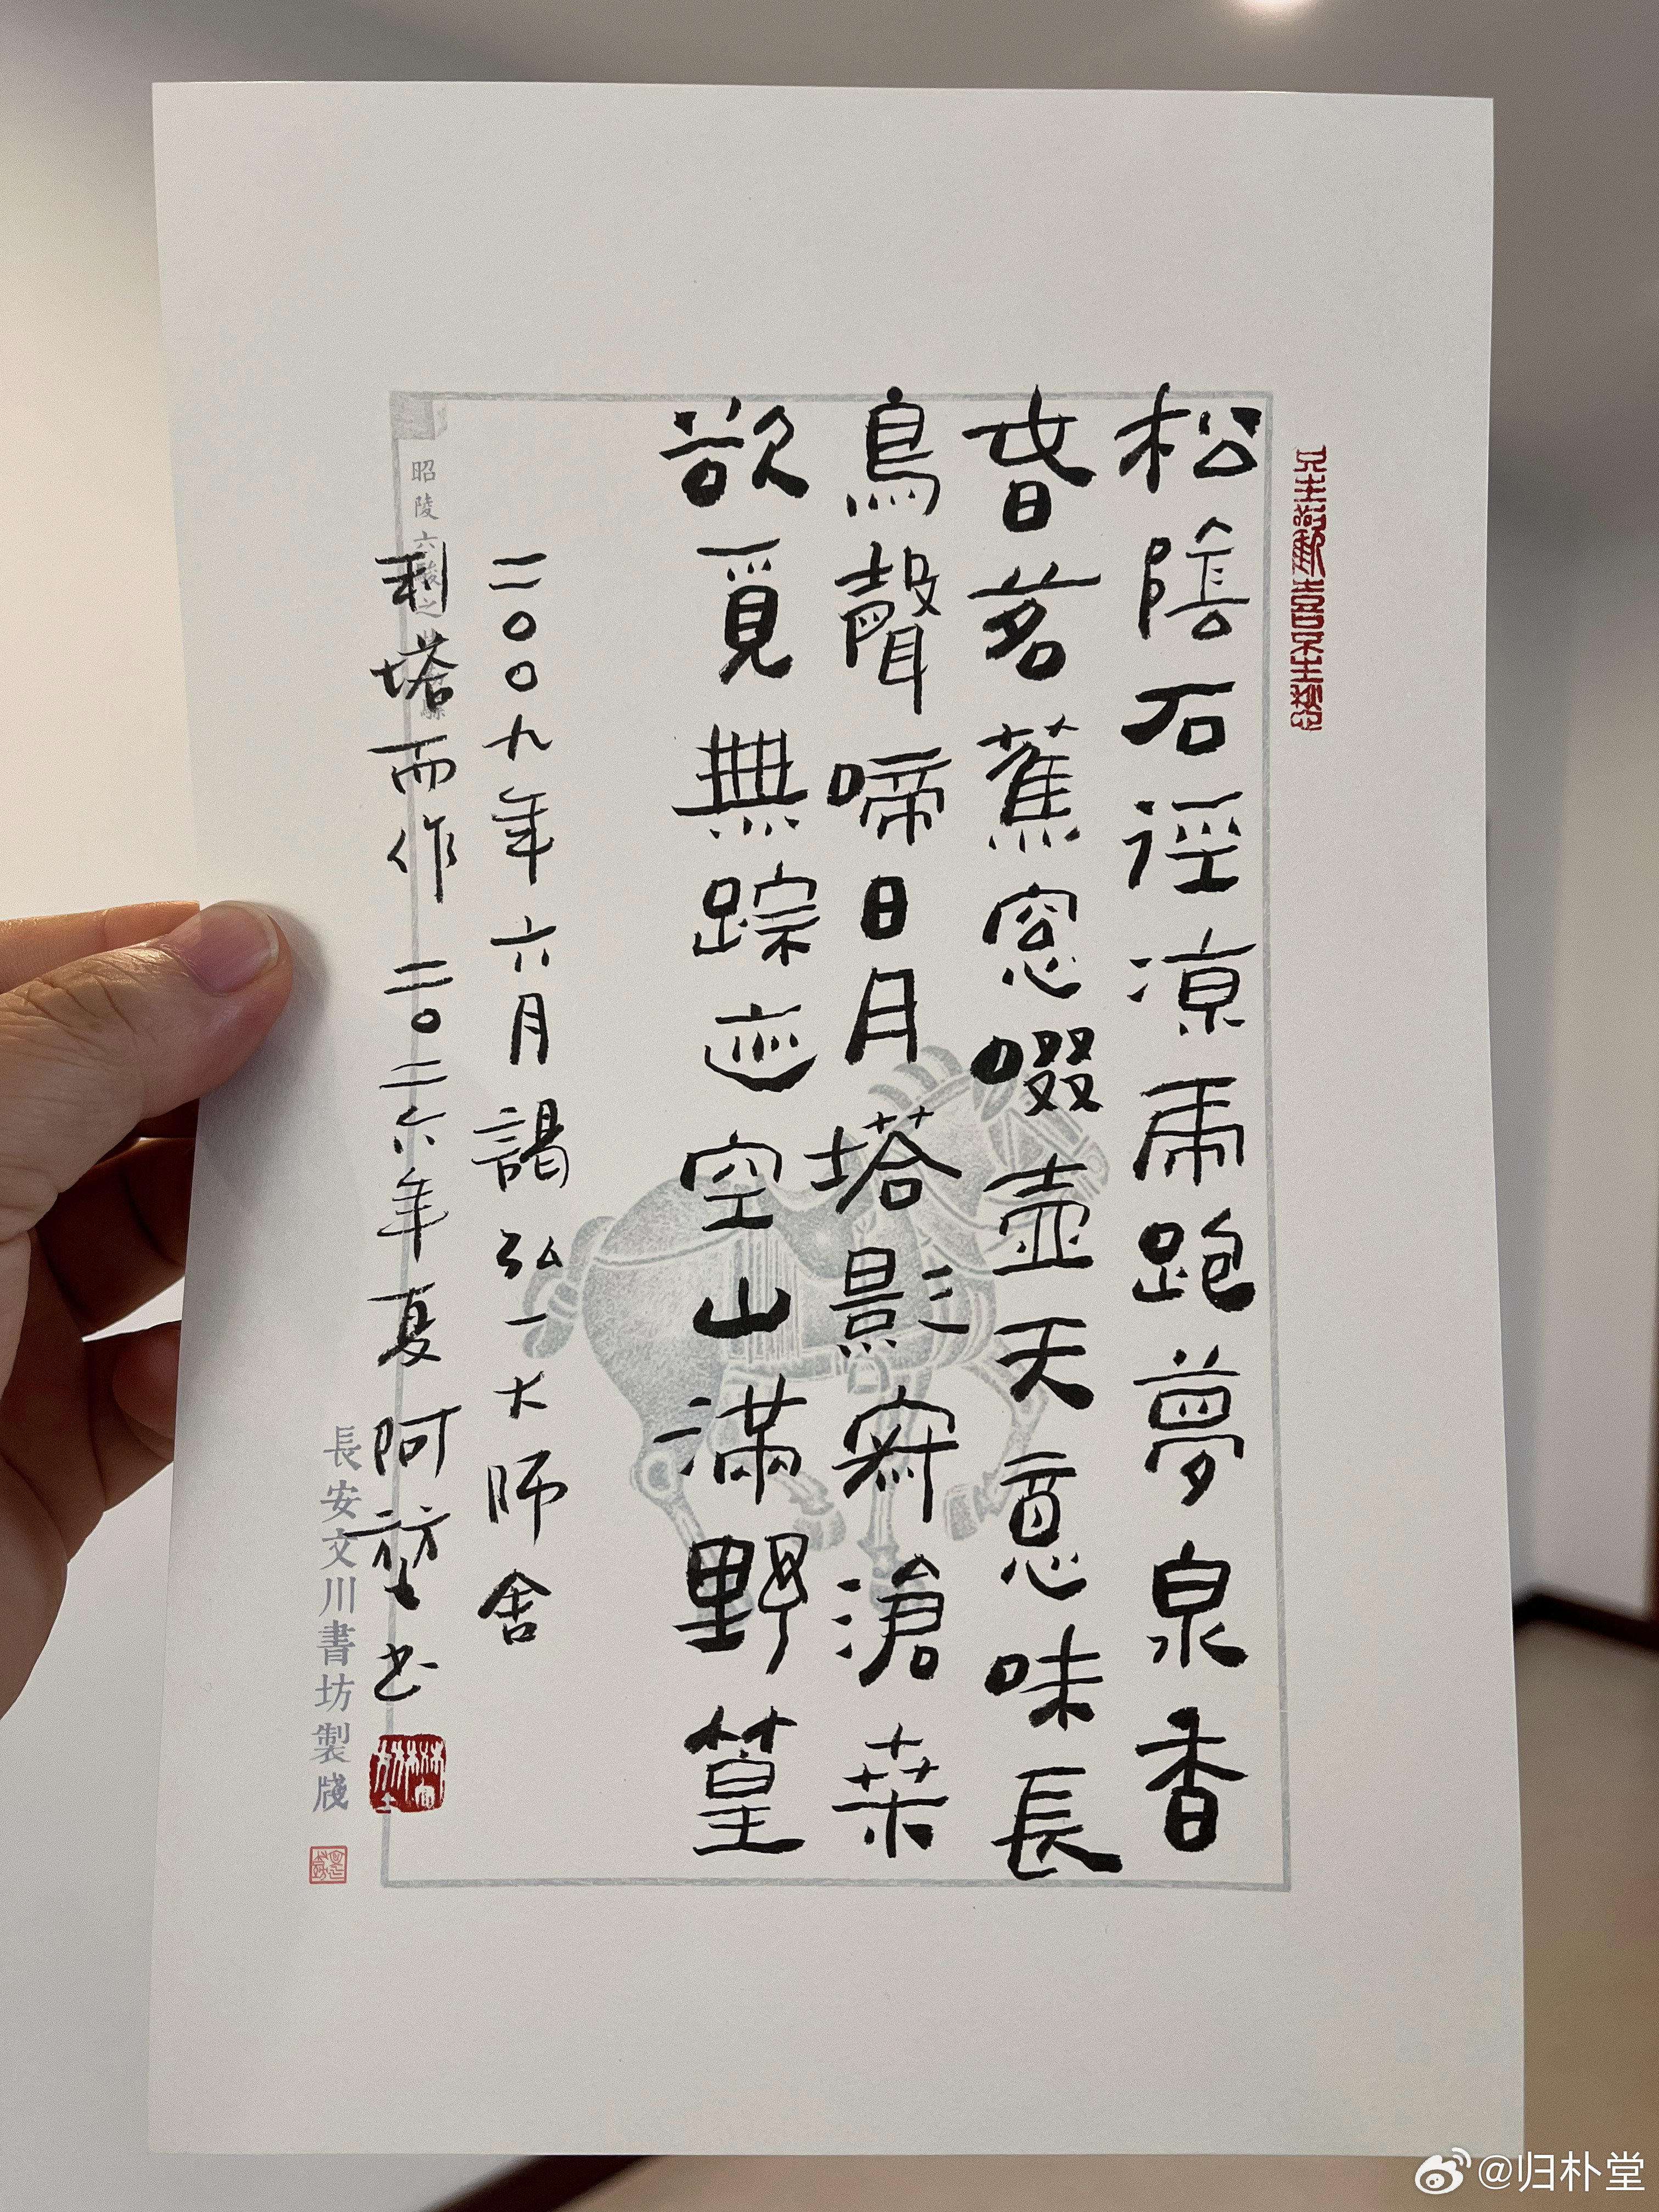 松陰石徑涼虎跑夢泉香
昏茗蕉窓啜壺天意味長
鳥聲啼日月塔影寂滄桒
欲覓無踪迹空山滿野篁
二〇〇九年六月謁弘一大師舍
利塔而作 二〇二六年夏 阿堃书
昭陵六駿之
長安文川書坊製牋
@归朴堂